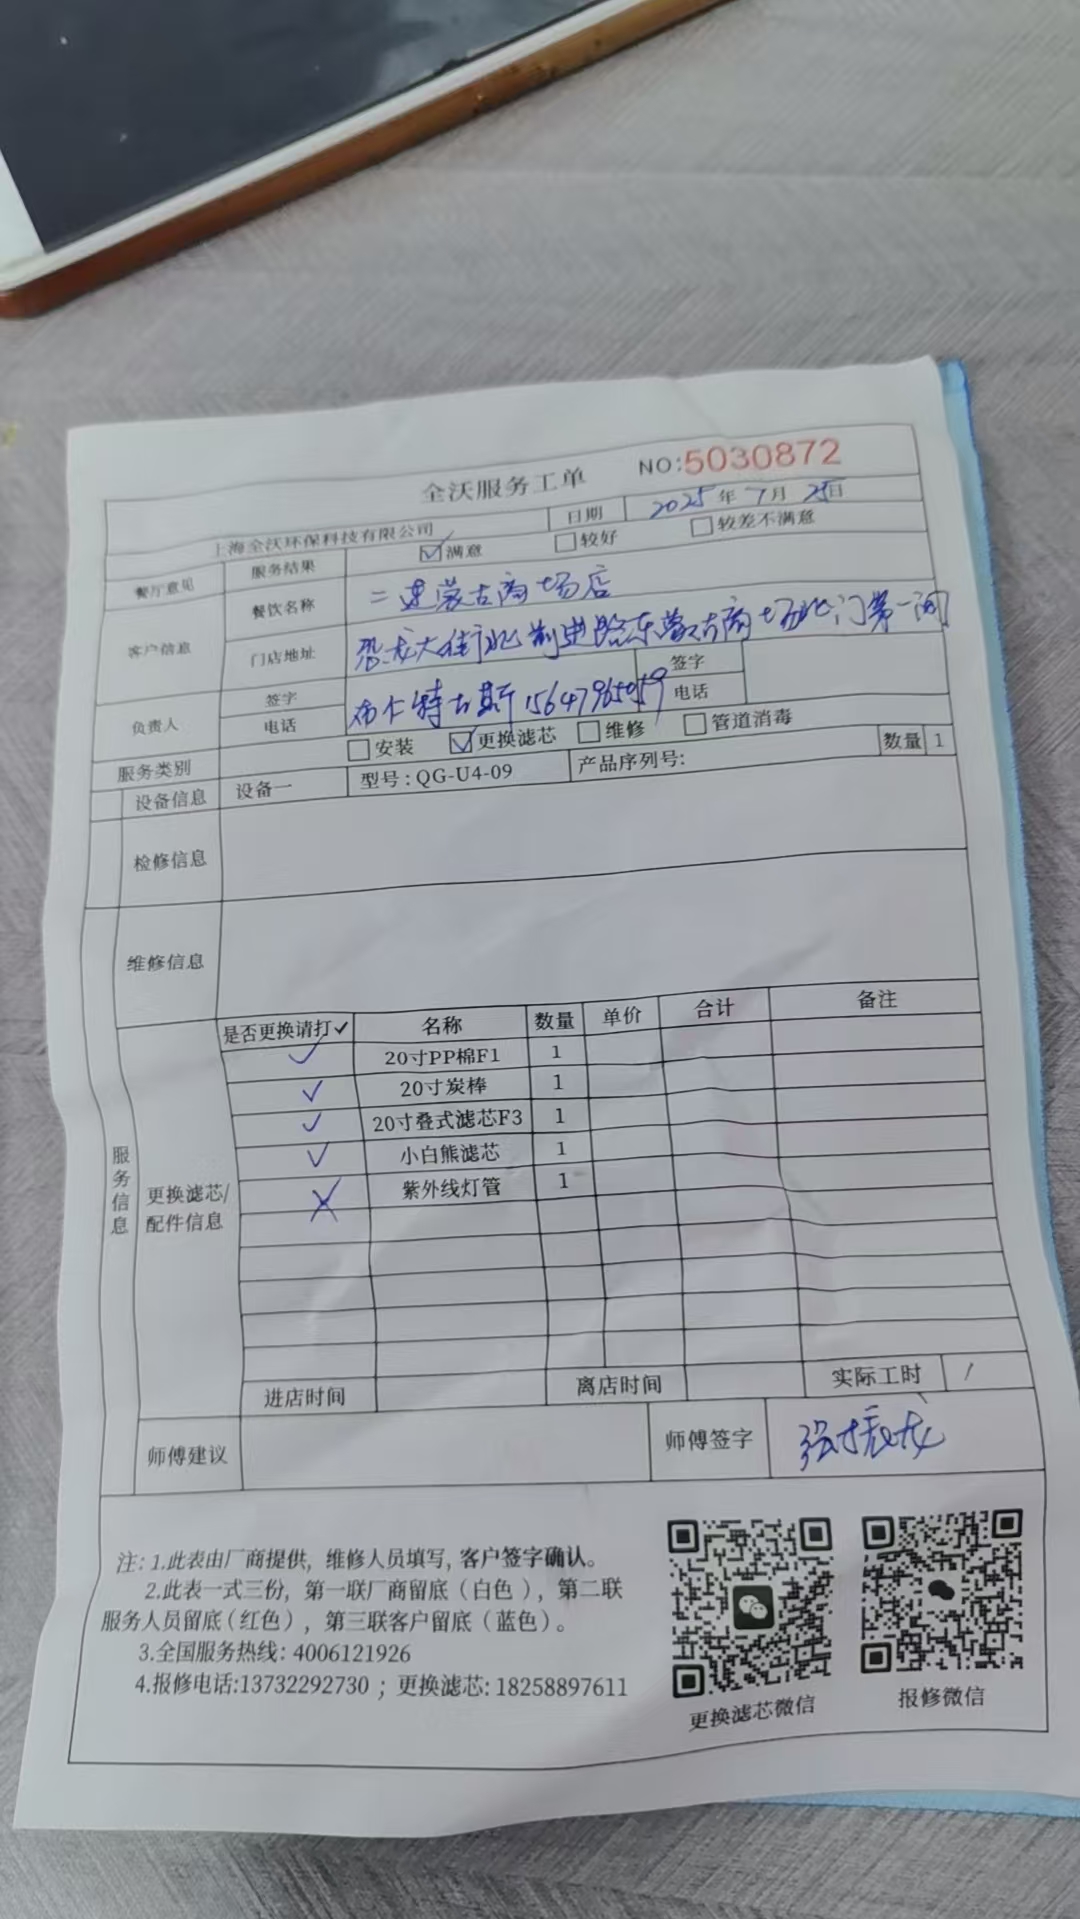 全沃服务工单 NO:5030872
上海全沃环保科技有限公司 日期 2025年7月25日
餐厅意见 服务结果 ☑满意 □较好 □较差不满意
客户信息 餐饮名称 二连蒙古商场店
门店地址 恐龙大街北前进路东蒙古商场北门第一间
负责人 签字 电话 布仁特古斯 15647965059 签字 电话
服务类别 □安装 ☑更换滤芯 □维修 □管道消毒
设备信息 设备一 型号:QG-U4-09 产品序列号: 数量 1
检修信息
维修信息
服务信息
更换滤芯/配件信息
是否更换请打✓ 名称 数量 单价 合计 备注
✓ 20寸PP棉F1 1
✓ 20寸炭棒 1
✓ 20寸叠式滤芯F3 1
✓ 小白熊滤芯 1
✗ 紫外线灯管 1
进店时间 离店时间 实际工时 /
师傅建议 师傅签字 张振龙
注: 1.此表由厂商提供, 维修人员填写, 客户签字确认。
2.此表一式三份, 第一联厂商留底(白色), 第二联
服务人员留底(红色), 第三联客户留底(蓝色)。
3.全国服务热线: 4006121926
4.报修电话:13732292730 ; 更换滤芯: 18258897611
更换滤芯微信 报修微信